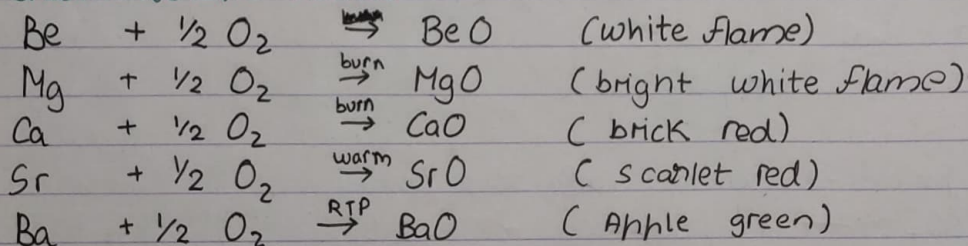 Be + 1/2 O2 → BeO (white flame)
Mg + 1/2 O2 burn → MgO (bright white flame)
Ca + 1/2 O2 burn → CaO (brick red)
Sr + 1/2 O2 warm → SrO (scarlet red)
Ba + 1/2 O2 RTP → BaO (Apple green)